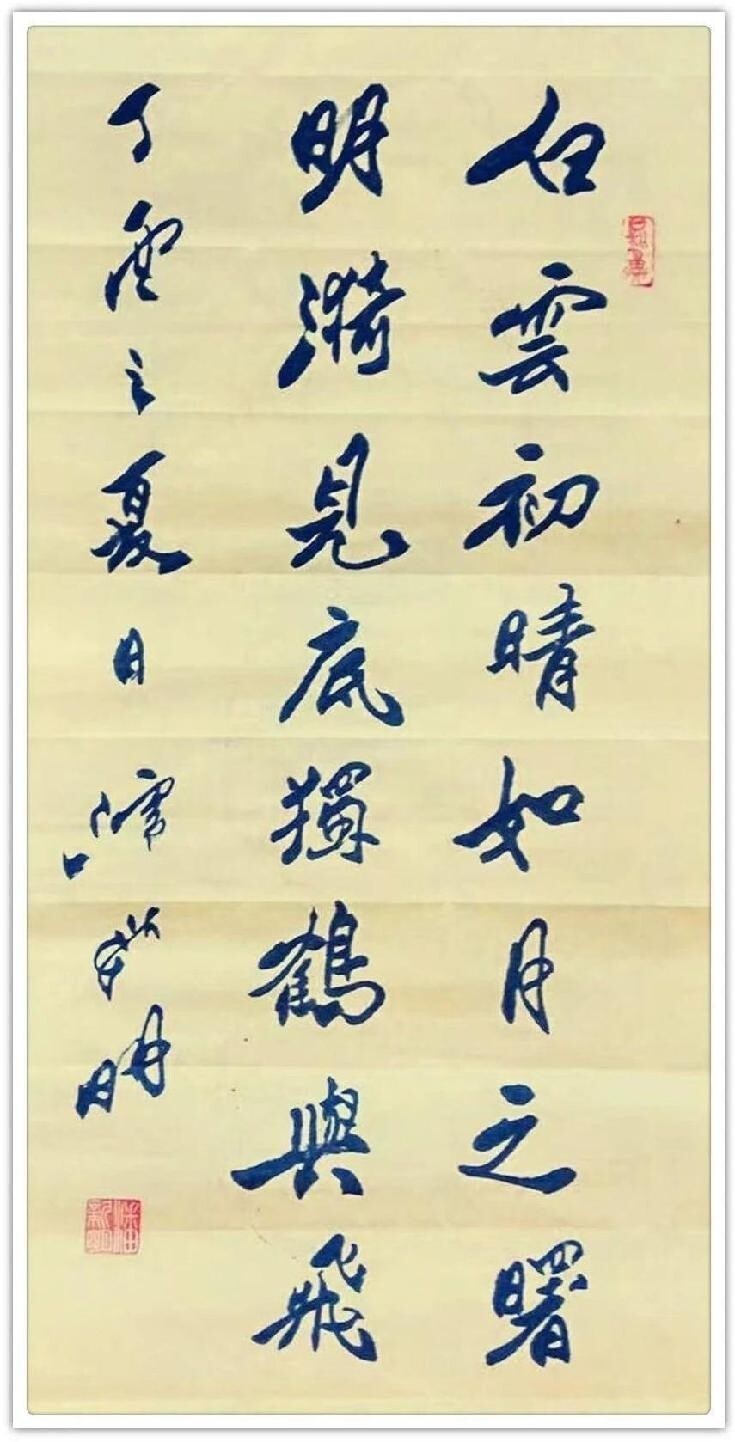 白雲初晴如月之曙
明漪見底獨鶴與飛
丁之夏日 明